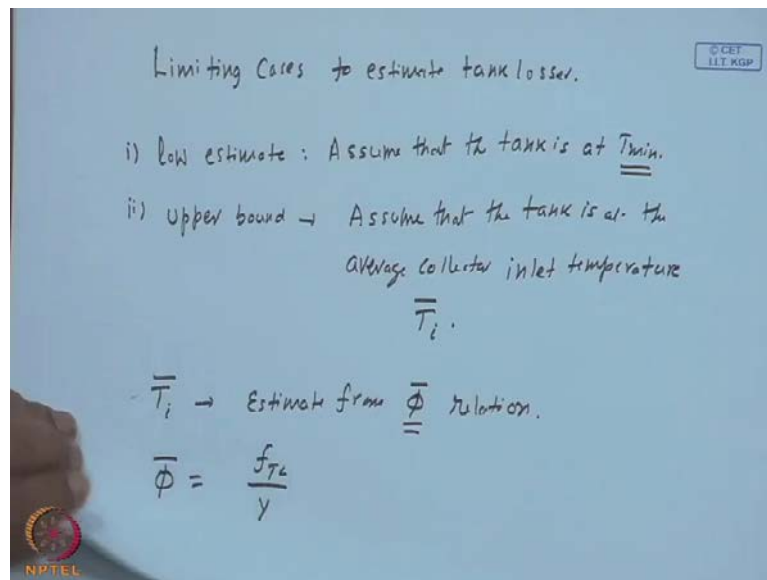 Limiting Cases to estimate tank losses.
© CET
I.I.T. KGP
i) low estimate : Assume that the tank is at Tmin.
ii) upper bound → Assume that the tank is at the
average collector inlet temperature
T̅i .
T̅i → Estimate from Φ̅ relation.
Φ̅ = fTL / Y
NPTEL